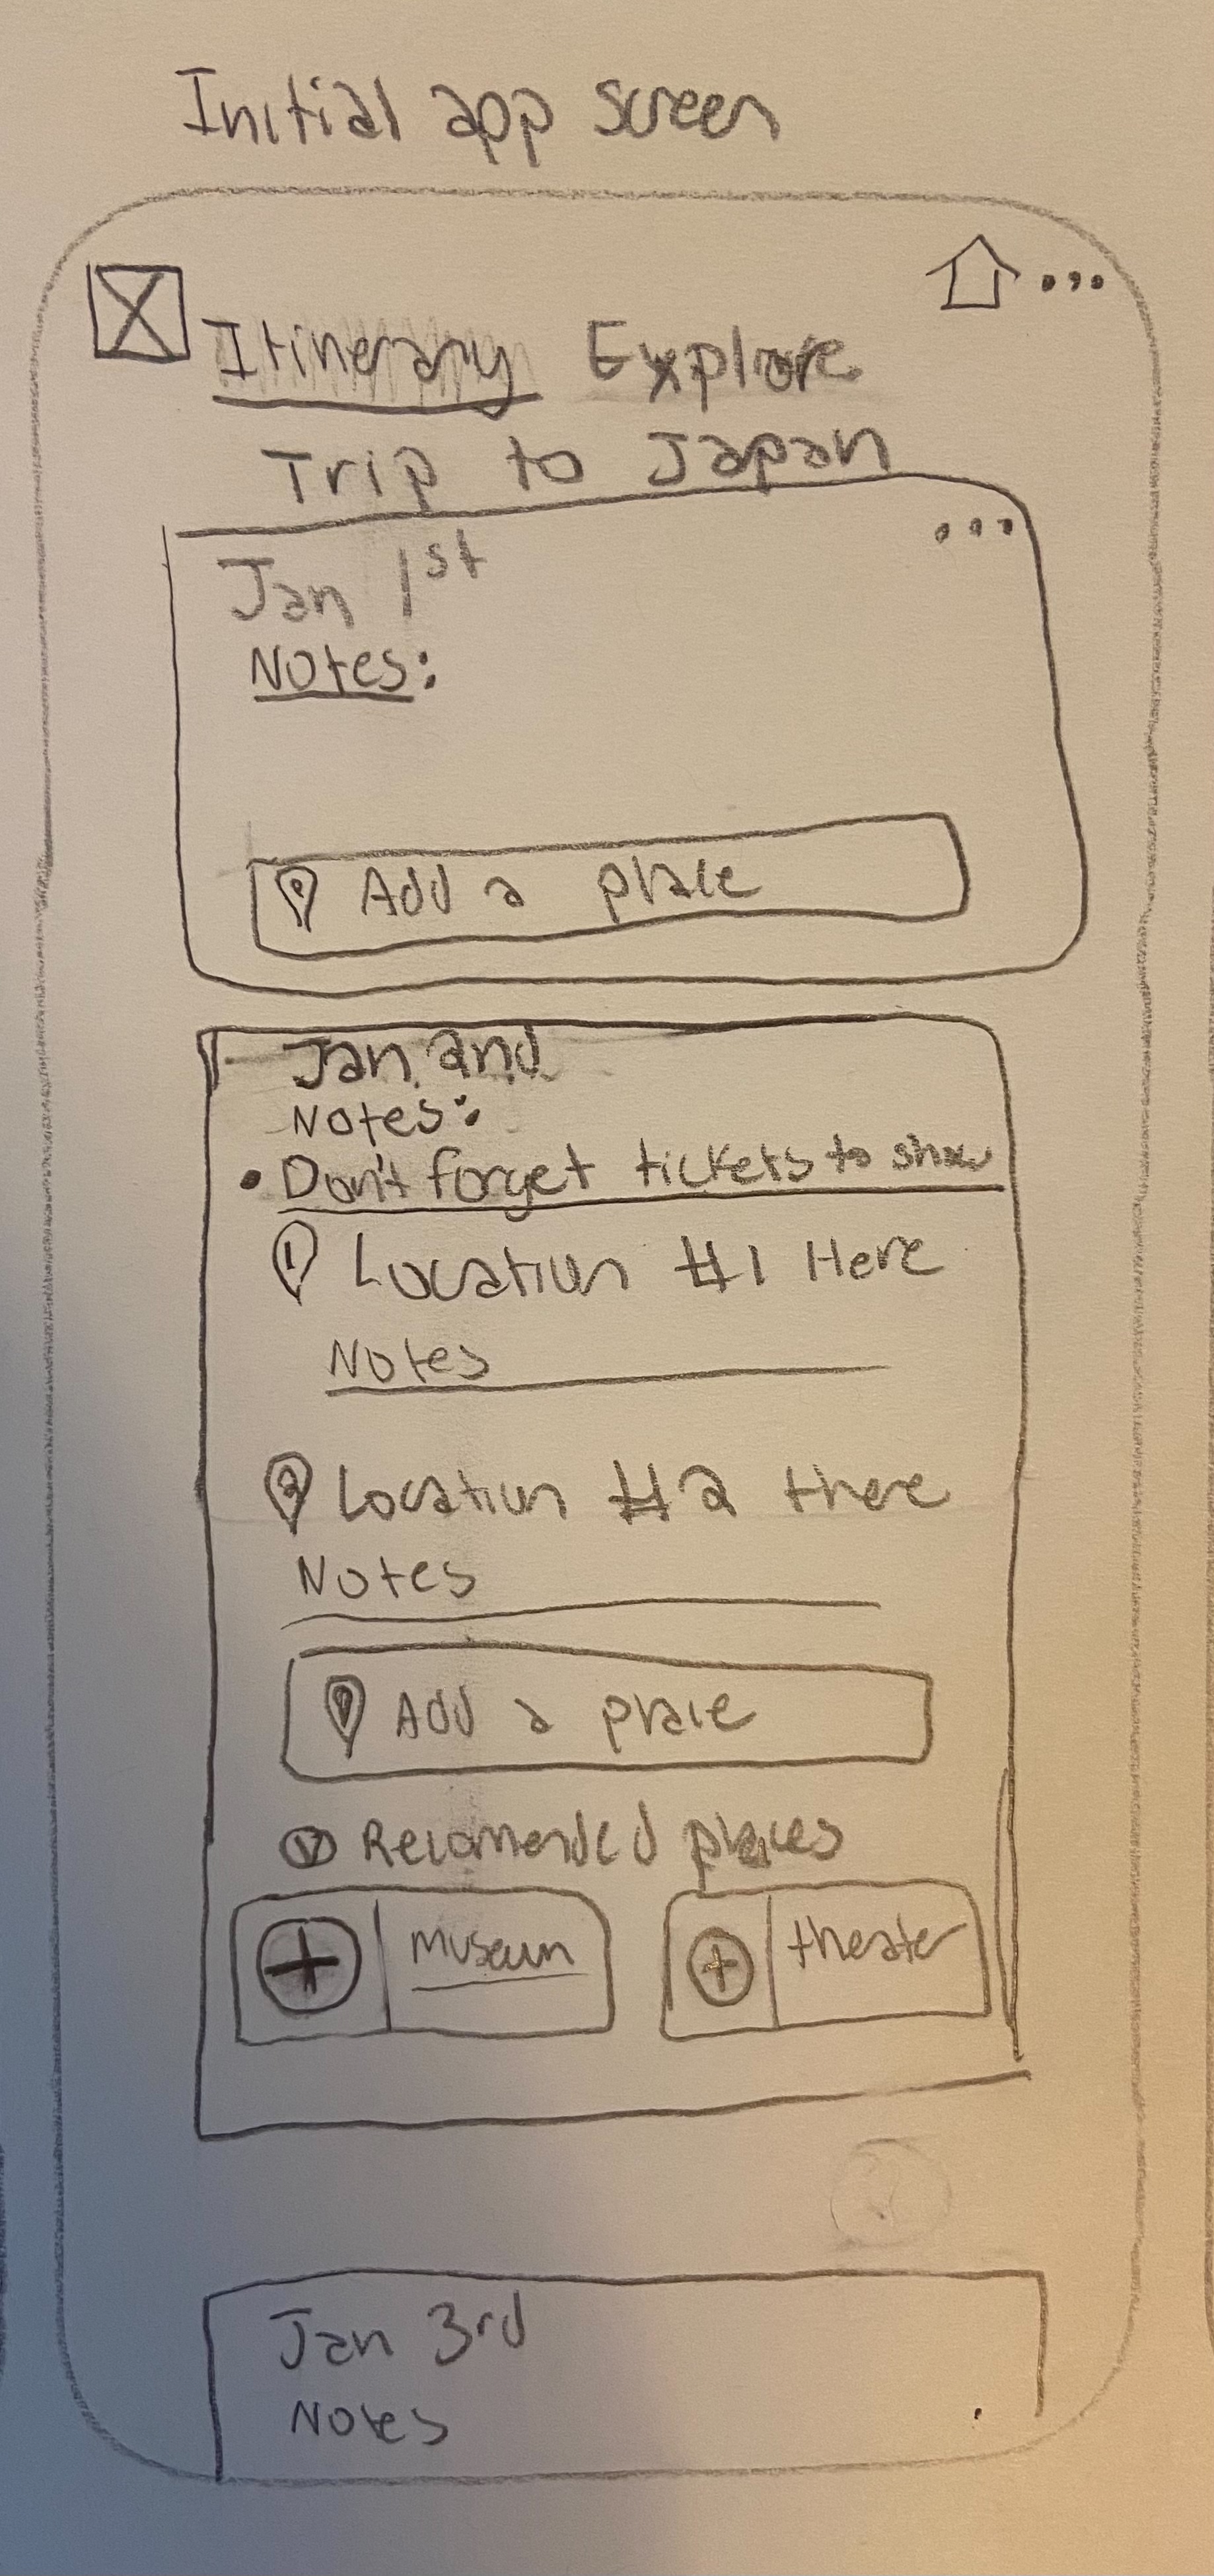 Initial app screen
Itinerary Explore
Trip to Japan
Jan 1st
Notes:
Add a place
Jan 2nd
Notes:
• Don't forget tickets to show
1 Location #1 Here
Notes
2 Location #2 there
Notes
Add a place
Recomended places
museum theater
Jan 3rd
Notes